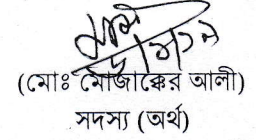 (মোঃ মোজাক্কের আলী)
সদস্য (অর্থ)